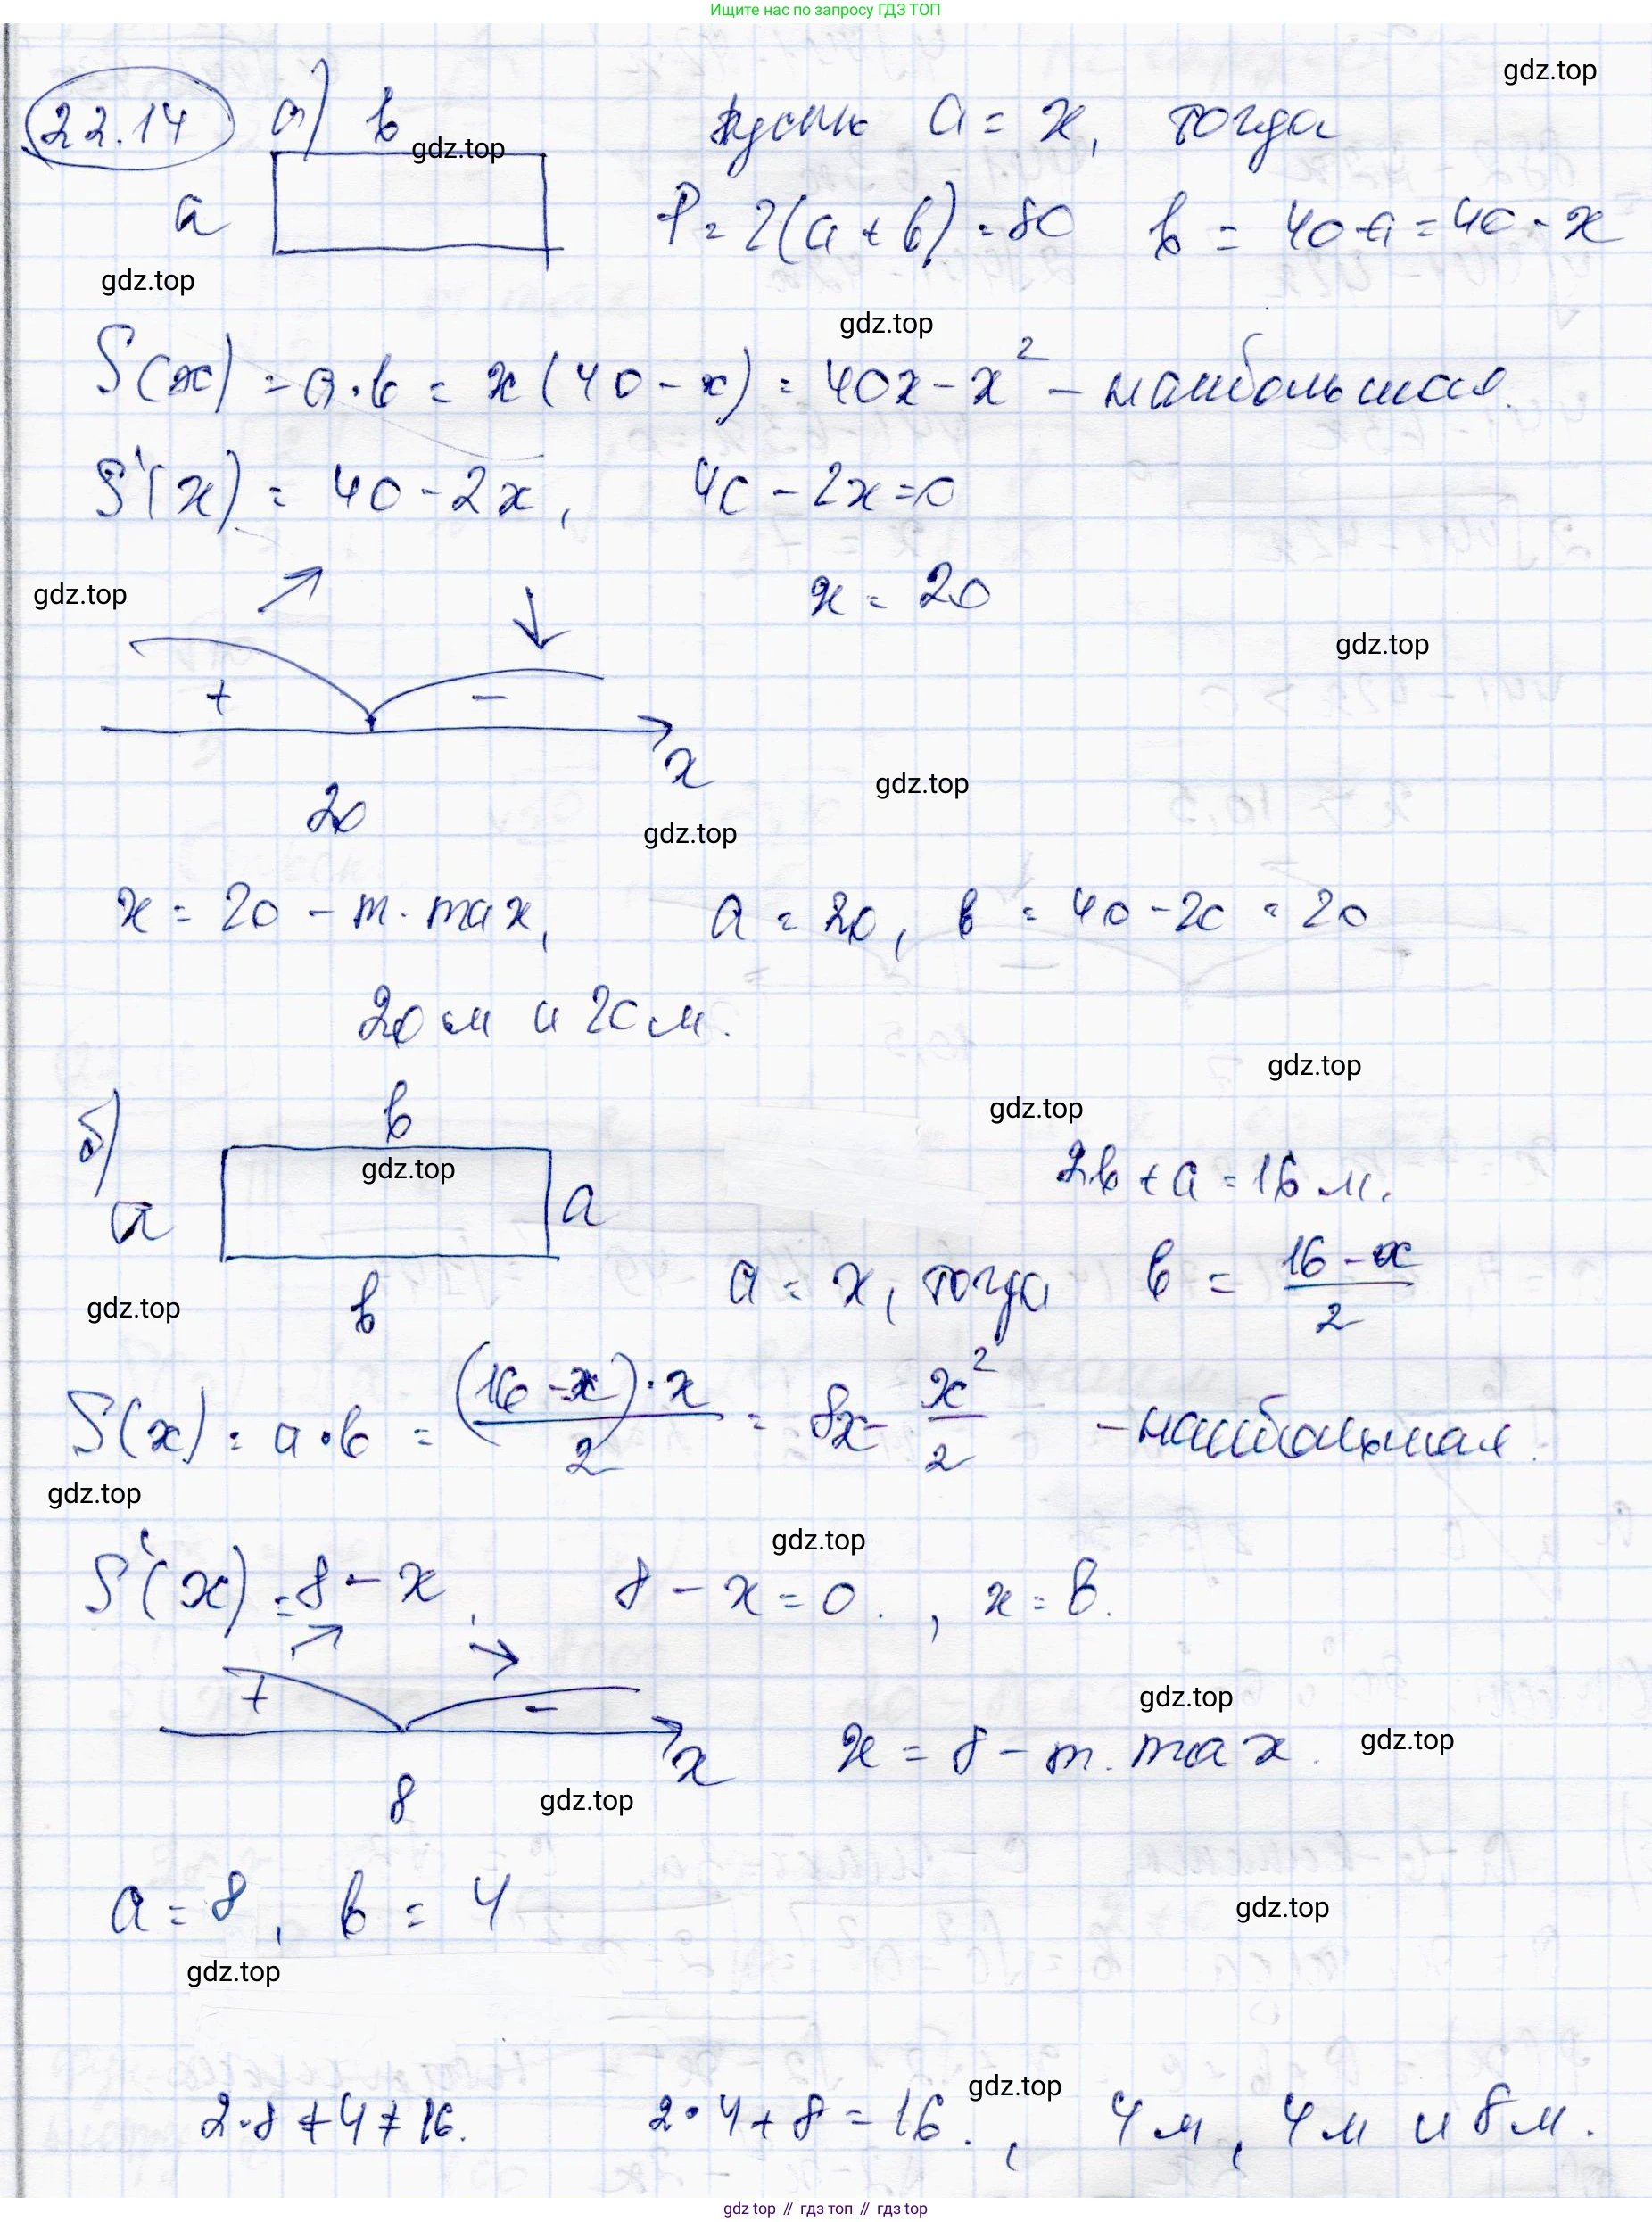 Ищите нас по запросу ГДЗ ТОП
gdz.top
22.14 а) в пусть a = x, тогда
gdz.top
a P = 2(a + в) = 80 в = 40 - a = 40 - x
gdz.top
gdz.top
S(x) = a · в = x (40 - x) = 40x - x² - наибольшая.
S'(x) = 40 - 2x, 40 - 2x = 0
gdz.top x = 20
gdz.top
+ -
x
gdz.top
20 gdz.top
x = 20 - т. max, a = 20, в = 40 - 20 = 20
20 м и 20 м.
gdz.top
б) в gdz.top
gdz.top 2в + a = 16 м.
a a
a = x, тогда в = (16 - x)/2
gdz.top в
S(x) = a · в = ((16 - x) · x)/2 = 8x - x²/2 - наибольшая.
gdz.top
gdz.top
S'(x) = 8 - x, 8 - x = 0. , x = 8.
+ - gdz.top
x x = 8 - т. max. gdz.top
8 gdz.top
a = 8, в = 4 gdz.top
gdz.top
gdz.top
2·8 + 4 ≠ 16. 2·4 + 8 = 16. , 4 м, 4 м и 8 м.
gdz.top // гдз топ // гдз top